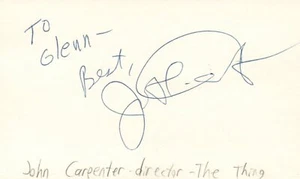 To
Glenn—
Best,
John Carpenter-director-The Thing